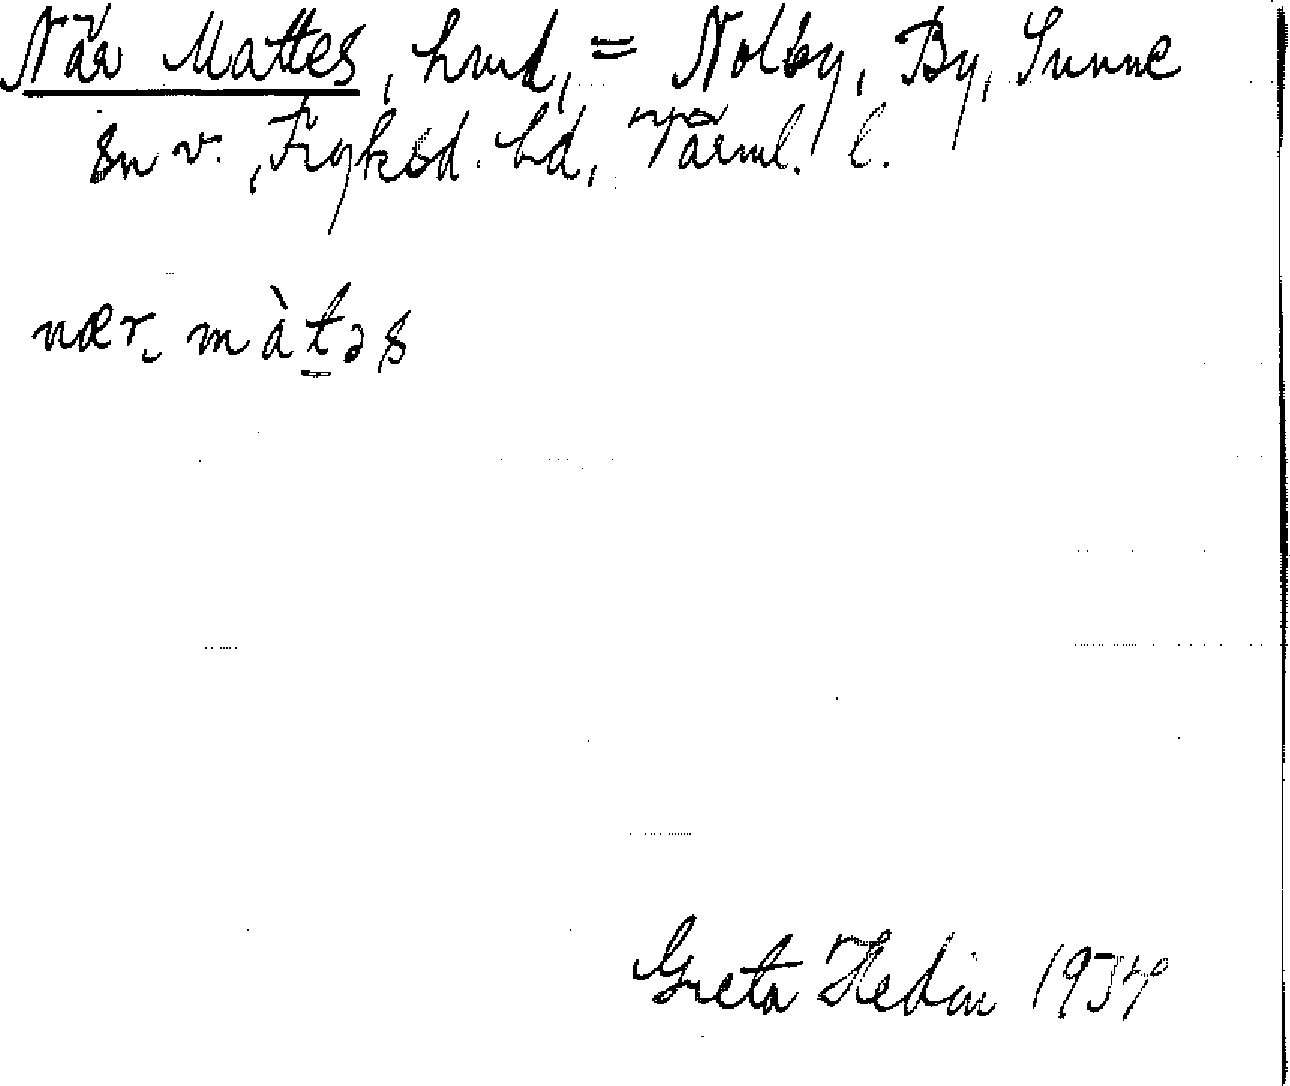 När Mattes, hmd, = Nolby, By, Sunne
sn v., Fryksd. hd, Värml. l.
nær. màtəs
Greta Hedin 1934